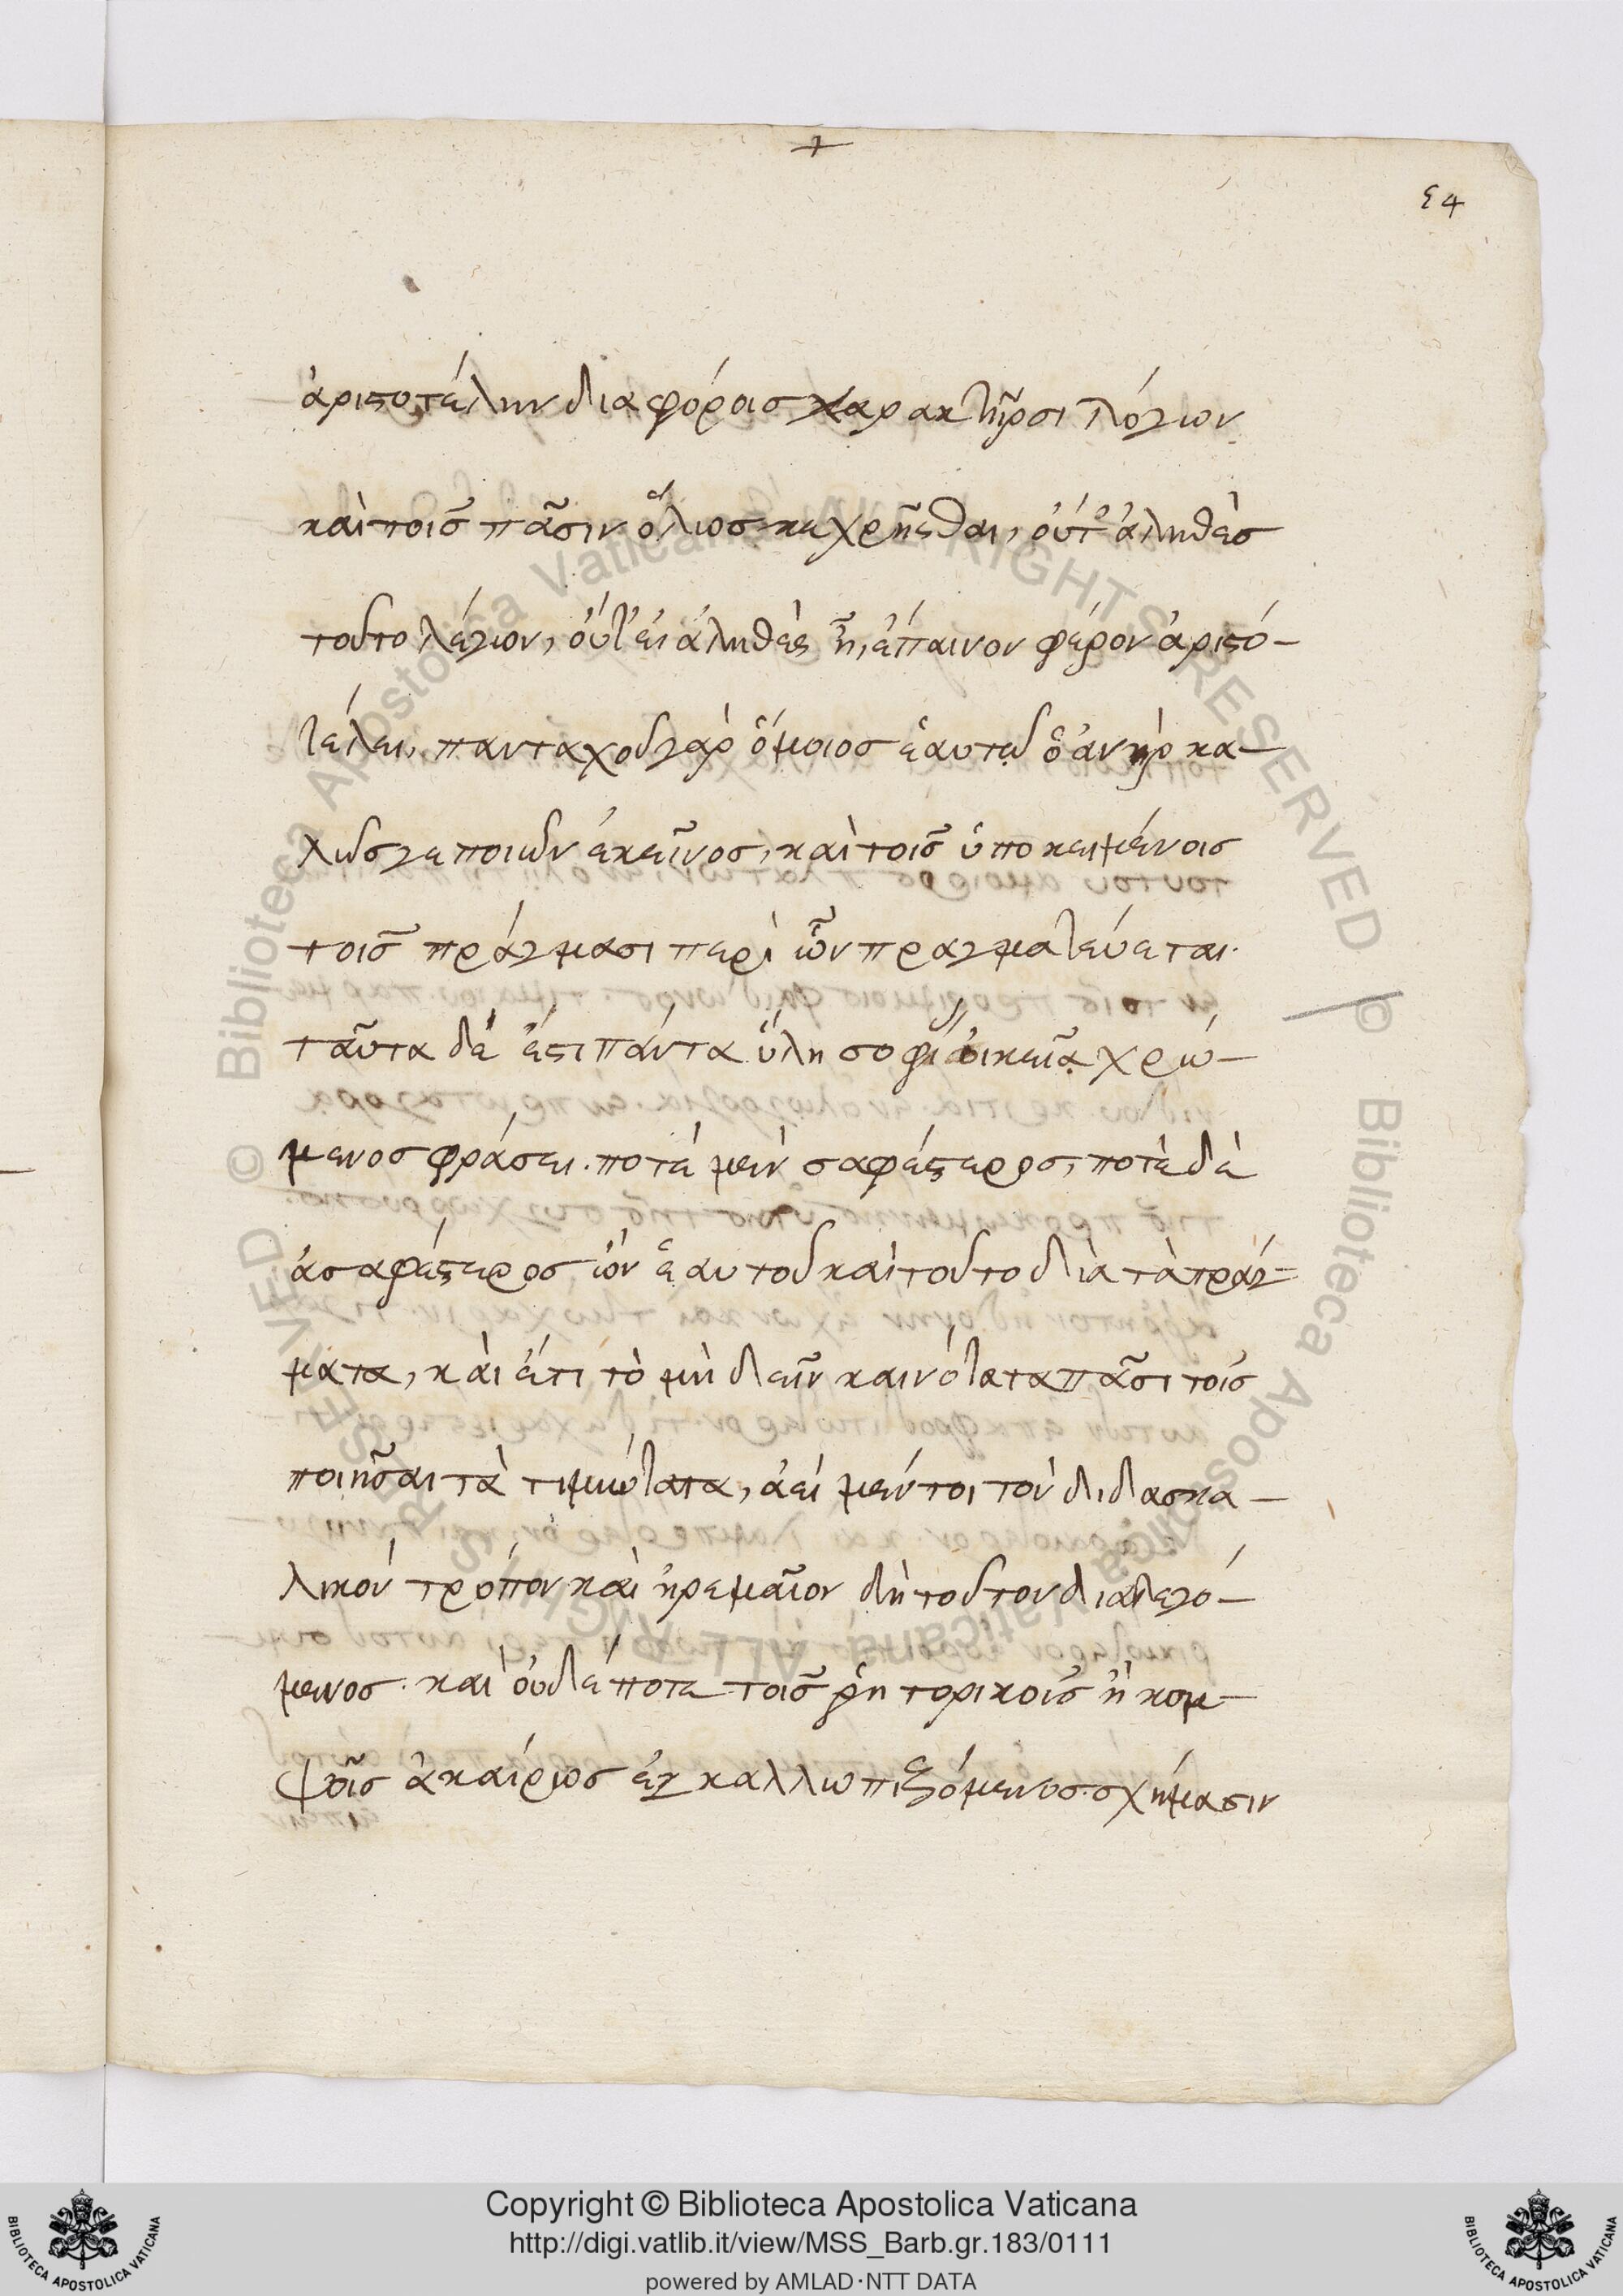 54
ἀριστοτέλην διαφόροις χαρακτῆρσι λόγων
καὶ τοῖς πᾶσιν ὅλως κεχρῆσθαι, οὔτε ἀληθὲς
τοῦτο λέγων, οὔτ' εἰ ἀληθὲς ἦ, ἔπαινον φέρον ἀριστό-
τέλει, πανταχοῦ γὰρ ὅμοιος ἑαυτῷ ὁ ἀνὴρ κα-
λῶς γε ποιῶν ἐκεῖνος, καὶ τοῖς ὑποκειμένοις
τοῖς πράγμασι περὶ ὧν πραγματεύεται.
ταῦτα δέ ἐστι πάντα ὕλη σοφίᾳ οἰκείᾳ χρώ-
μενος φράσει. ποτὲ μὲν σαφέστερος, ποτὲ δὲ
ἀσαφέστερος ὢν ἑαυτοῦ καὶ τοῦτο διὰ τὰ πράγ-
ματα, καὶ ἔτι τὸ μὴ δεῖν καινότατα πᾶσι τοῖς
ποιῆσαι τὰ τιμιώτατα, ἀεὶ μέντοι τὸν διδασκα-
λικὸν τρόπον καὶ ἠρεμαῖον δὴ τοῦτον διαλεγό-
μενος. καὶ οὐδέποτε τοῖς ῥητορικοῖς ἢ κομ-
ψοῖς ἀκαίρως ἐγκαλλωπιζόμενος σχήμασιν
Copyright © Biblioteca Apostolica Vaticana
http://digi.vatlib.it/view/MSS_Barb.gr.183/0111
powered by AMLAD·NTT DATA
BIBLIOTECA APOSTOLICA VATICANA
BIBLIOTECA APOSTOLICA VATICANA
© Biblioteca Apostolica Vaticana ALL RIGHTS RESERVED
© Biblioteca Apostolica Vaticana ALL RIGHTS RESERVED